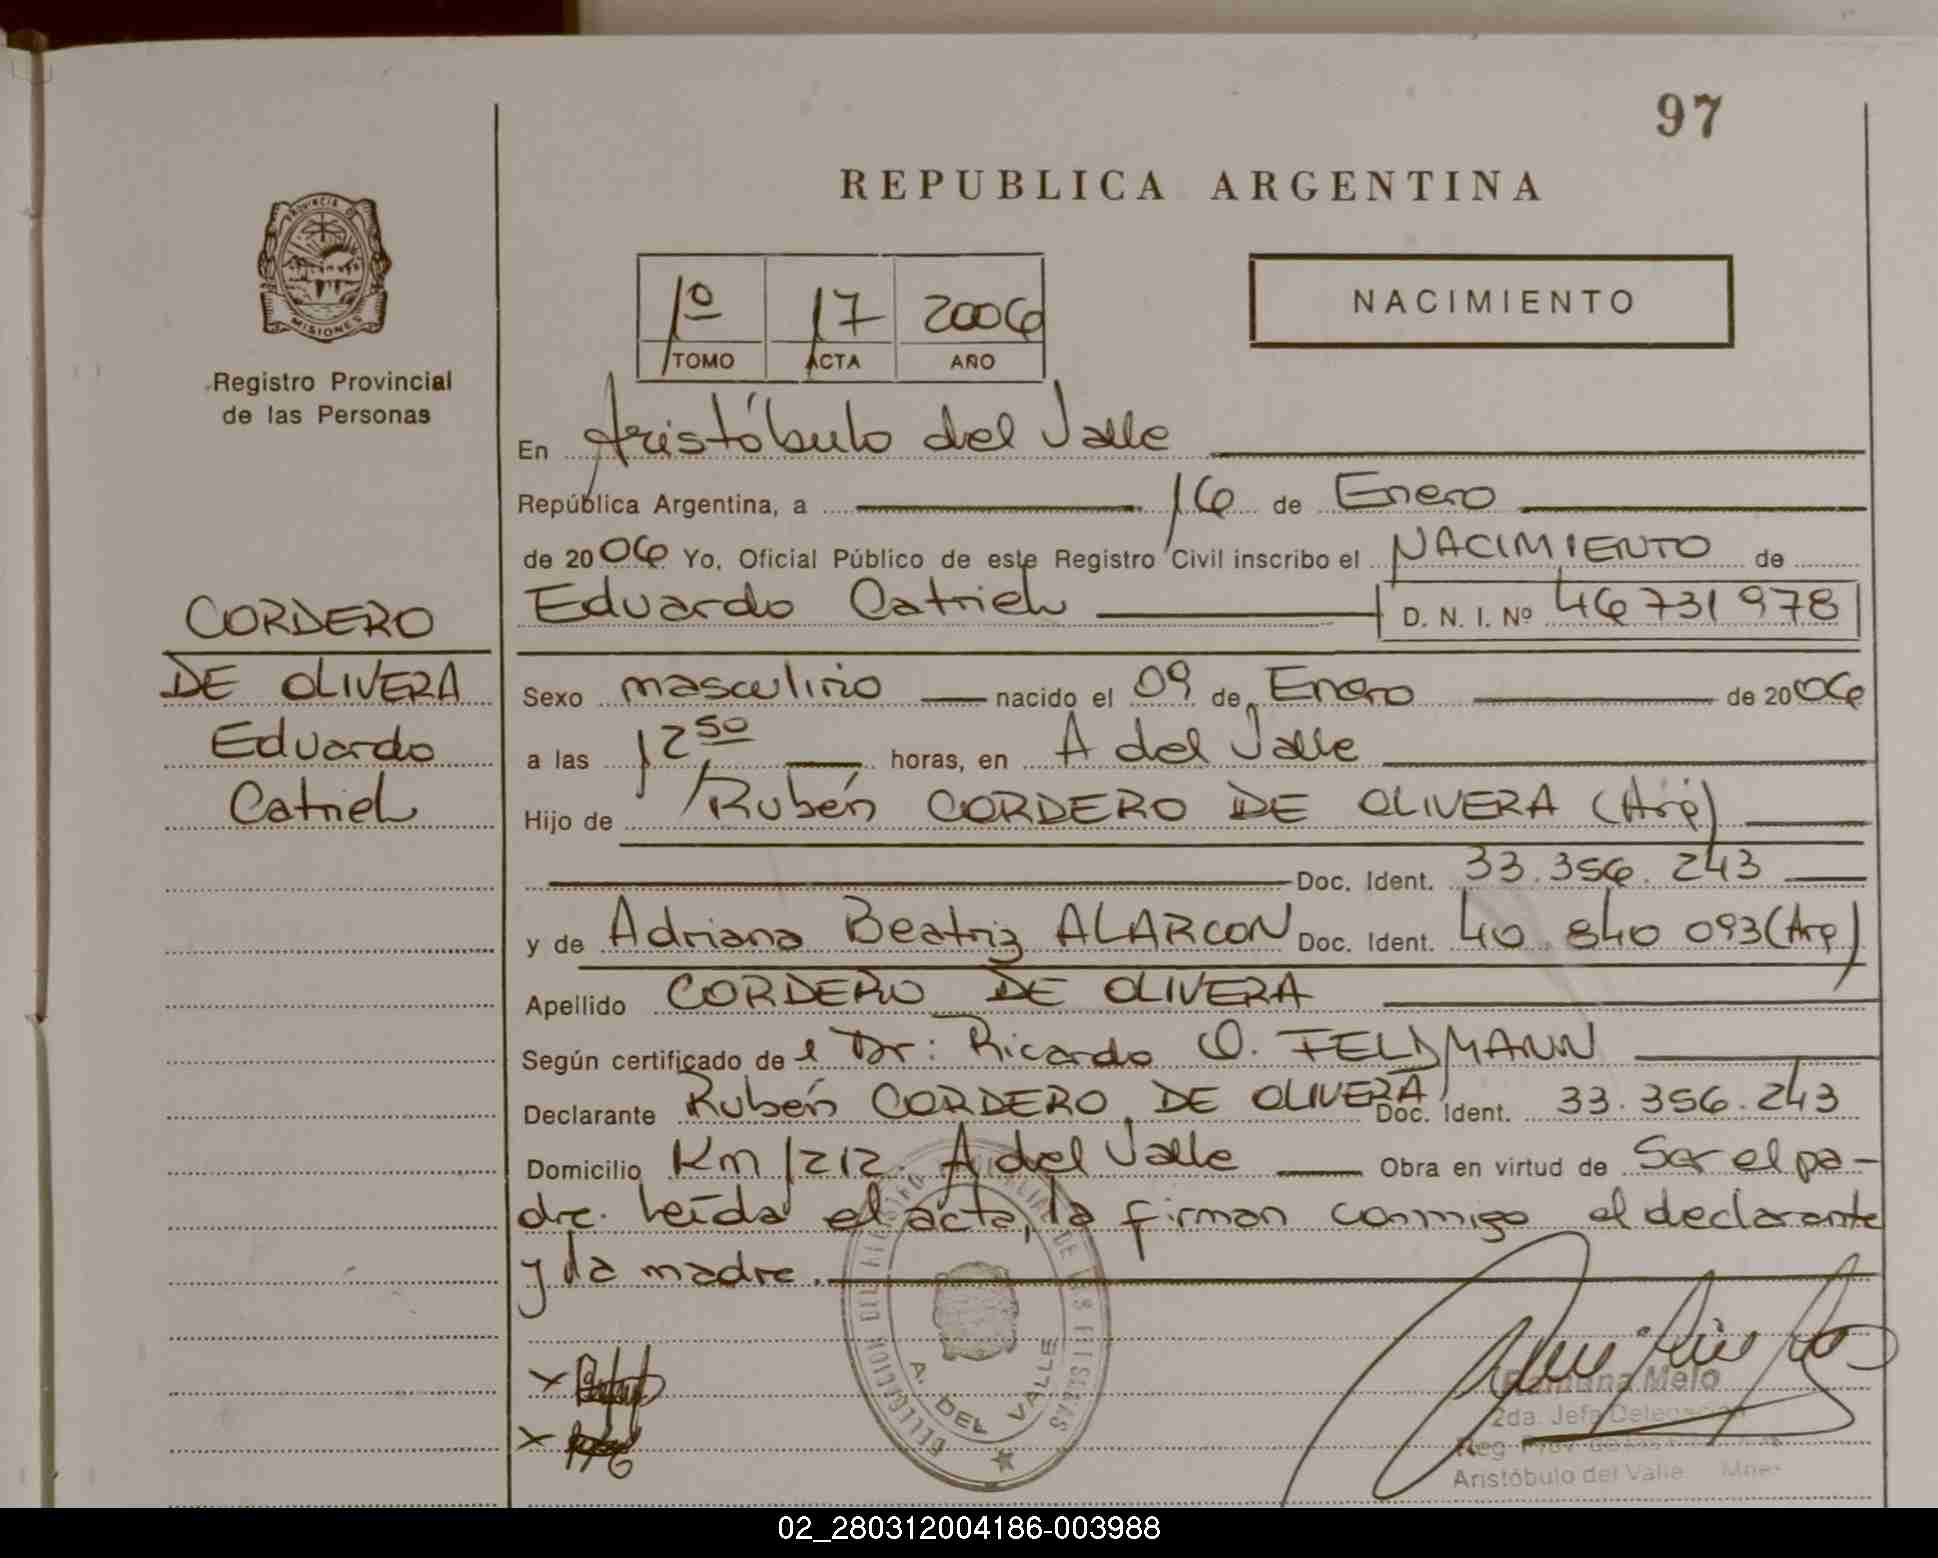 97
REPUBLICA ARGENTINA
PROVINCIA DE
MISIONES
Registro Provincial
de las Personas
1º 17 2006
TOMO ACTA AÑO
NACIMIENTO
En Aristóbulo del Valle
República Argentina, a 16 de Enero
de 2006 Yo, Oficial Público de este Registro Civil inscribo el NACIMIENTO de
Eduardo Catriel D. N. I. Nº 46731978
CORDERO
DE OLIVERA
Eduardo
Catriel
Sexo masculino nacido el 09 de Enero de 2006
a las 12 50 horas, en A del Valle
Hijo de Rubén CORDERO DE OLIVERA (Arg)
Doc. Ident. 33.356.243
y de Adriana Beatriz ALARCON Doc. Ident. 40.840.093 (Arg)
Apellido CORDERO DE OLIVERA
Según certificado de l Dr: Ricardo O. FELDMANN
Declarante Rubén CORDERO DE OLIVERA Doc. Ident. 33.356.243
Domicilio Km 1212. A del Valle Obra en virtud de Ser el pa-
dre. Leída el acta, la firman conmigo el declarante
y la madre.
DELEGACION DEL REGISTRO DE LAS PERSONAS
A. DEL VALLE
Ramona Melo
2da. Jefa Delegación
Reg. Prov.
Aristóbulo del Valle Mnes
02_280312004186-003988